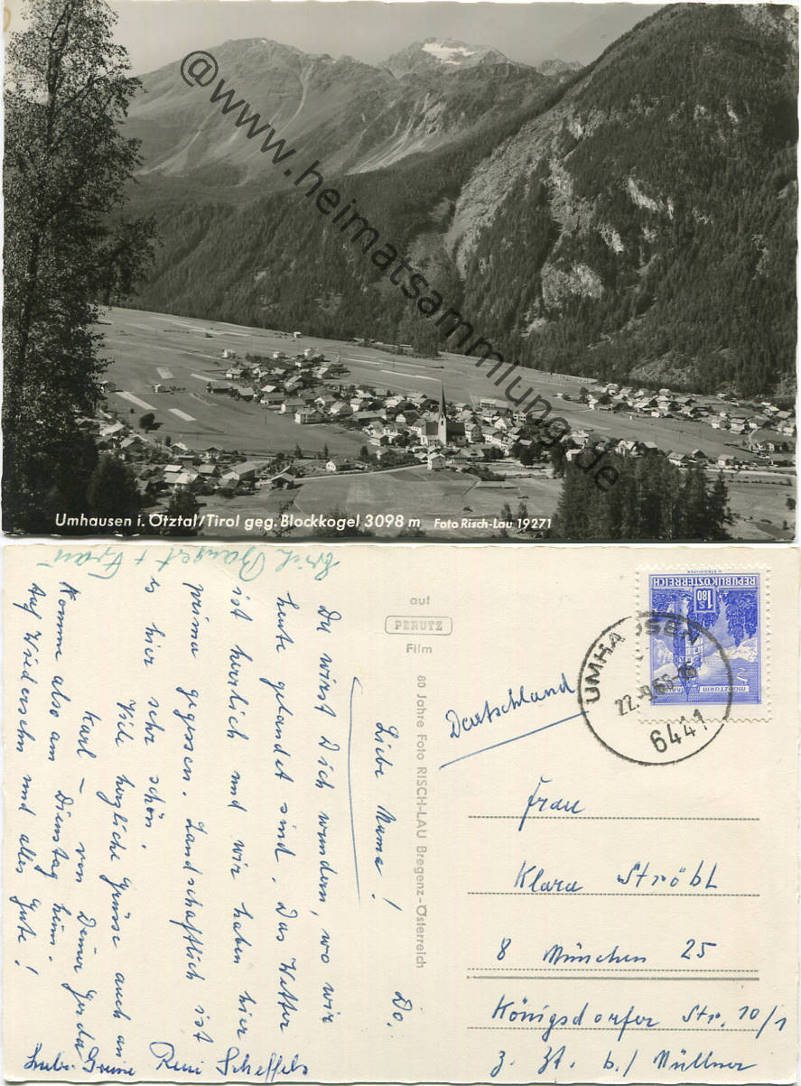 @www.heimatsammlung.de
Umhausen i. Ötztal/Tirol geg. Blockkogel 3098 m Foto Risch-Lau 19271
auf
PERUTZ
Film
60 Jahre Foto RISCH-LAU Bregenz-Österreich
REPUBLIK ÖSTERREICH
S 1.80
MÜNZTURM
UMHAUSEN
6441
Deutschland
Frau
Klara Ströbl
8 München 25
Königsdorfer Str. 10/1
z. Zt. b./ Müllner
Do.
Liebe Mama!
Du wirst Dich wundern, wo wir
heute gelandet sind. Das Wetter
ist herrlich und wir haben hier
prima gegessen. Landschaftlich ist
es hier sehr schön.
Viele herzliche Grüsse auch an
Karl – von Deiner Gerda
Komme also am Dienstag heim.
Auf Wiedersehn und alles Gute!
+ Frau
Liebe Grüsse Reni Scheffels